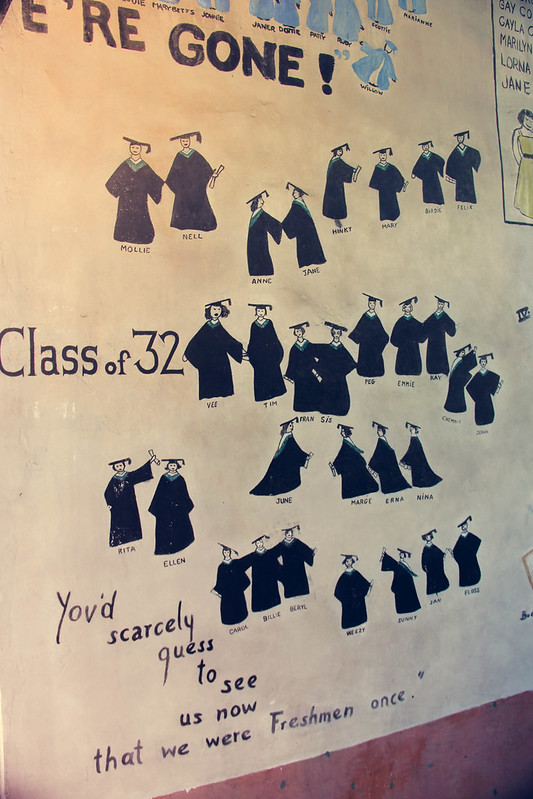 MARYBETTS JONNIE JANER DOTTIE PATTY RUBY SCOTTIE MARIANNE
E'RE GONE!"
WILLOW
GAY CO
GAYLA C
MARILYN
LORNA
JANE
MOLLIE NELL ANNE JANE HINKY MARY BIRDIE FELIX
Class of 32
VEE TIM FRAN SIS PEG EMMIE KAY
JUNE MARGE ERNA NINA
RITA ELLEN
CAROL BILLIE BERYL WEEZY SUNNY JAN FLOSS
You'd
scarcely
guess
to
see
us now
that we were Freshmen once."